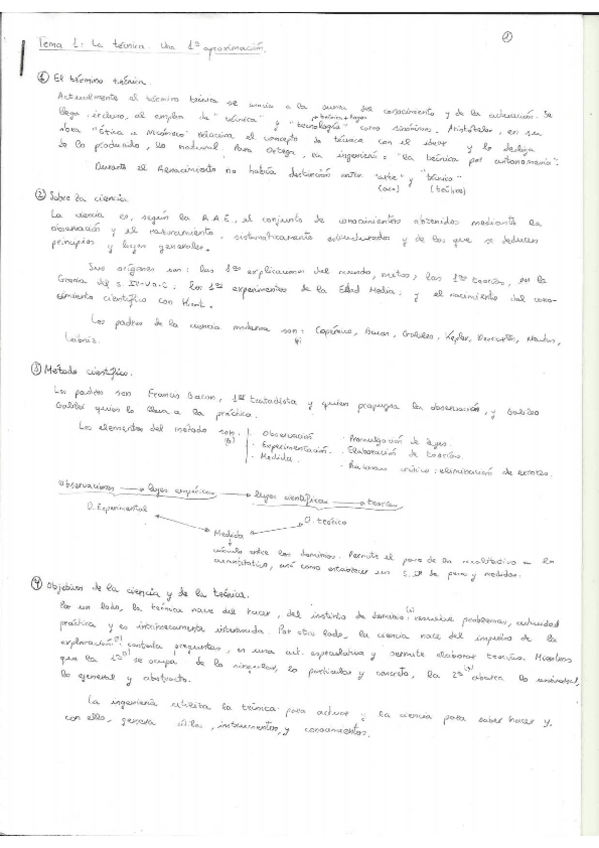 Tema 1: La técnica. Una 1ª aproximación.
① El término técnica.
Actualmente el término técnica se asocia a la suma del conocimiento y de la actuación. Se
llega incluso, al empleo de "técnica" y "tecnología" como sinónimos. Aristóteles, en su
obra "Ética a Nicómaco" relaciona el concepto de técnica con el idear y lo desliga
de lo producido, lo natural. Para Ortega, la ingeniería: "la técnica por autonomasia".
Durante el Renacimiento no había distinción entre "arte" y "técnica"
② Sobre la ciencia
La ciencia es, según la R.A.E, el conjunto de conocimientos obtenidos mediante la
observación y el razonamiento, sistemáticamente estructurados y de los que se deducen
principios y leyes generales.
Sus orígenes son: las 1ªs explicaciones del mundo, mitos; las 1ªs teorías, en la
Grecia del s. IV-V a.C; los 1ºs experimentos de la Edad Media; y el nacimiento del cono-
cimiento científico con Kant.
Los padres de la ciencia moderna son: Copérnico, Bacon, Galileo, Kepler, Descartes, Newton,
Leibniz.
③ Método científico.
Los padres son Francis Bacon, 1er tratadista y quien propugna la observación, y Galileo
Galilei quien lo lleva a la práctica.
Los elementos del método son:
· Observación · Promulgación de leyes.
· Experimentación. · Elaboración de teorías.
· Medida. crítico: eliminación de errores.
Observaciones → leyes empíricas → leyes científicas → teorías
D. Experimental
D. teórico
Medida
vínculo entre los dominios. Permite el paso de lo cualitativo a lo
cuantitativo, así como establecer un de pesos y medidas.
④ Objetivos de la ciencia y de la técnica.
Por un lado, la técnica nace del hacer, del instinto de dominio: resuelve problemas, actividad
práctica y es intrínsecamente interesada. Por otro lado, la ciencia nace del impulso de la
exploración: contesta preguntas, es una act. especulativa y permite elaborar teorías. Mientras
que la 1ª se ocupa de lo singular, lo particular y concreto, la 2ª abarca lo universal,
lo general y abstracto.
La ingeniería utiliza la técnica para actuar y la ciencia para saber hacer y,
con ello, genera útiles, instrumentos, y conocimientos.